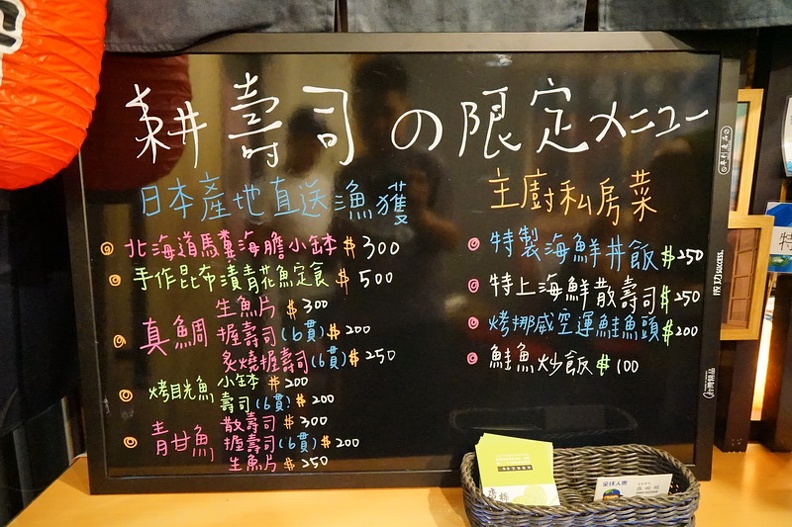 耕壽司の限定メニュー
日本產地直送漁獲
北海道馬糞海膽小缽 $300
手作昆布漬青花魚定食 $500
真鯛
生魚片 $300
握壽司(6貫) $200
炙燒握壽司(6貫) $250
烤目光魚 小缽 $200
壽司(6貫) $200
青甘魚
散壽司 $300
握壽司(6貫) $200
生魚片 $250
主廚私房菜
特製海鮮丼飯 $250
特上海鮮散壽司 $250
烤挪威空運鮭魚頭 $200
鮭魚炒飯 $100
成功 success